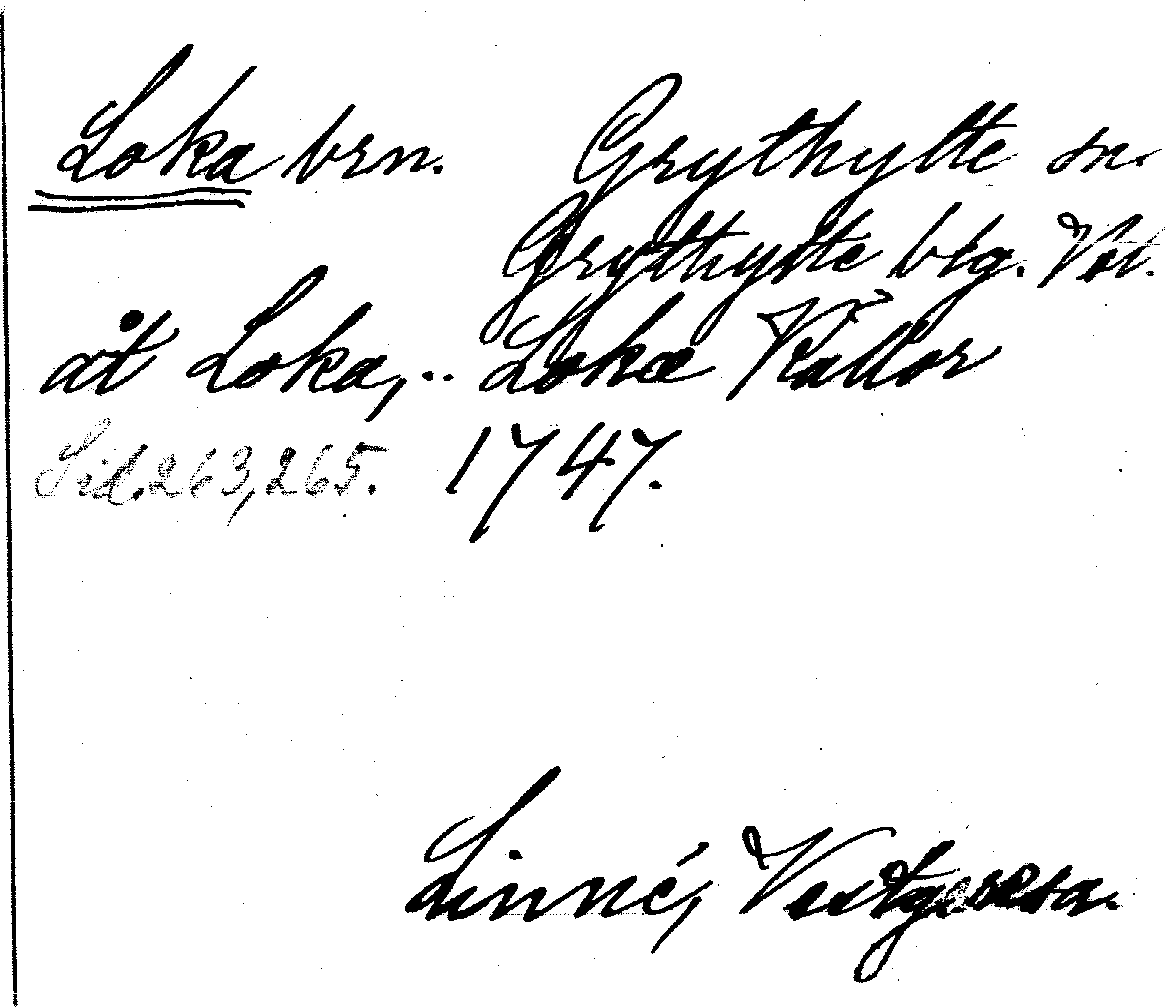 Loka brn. Grythytte sn.
Grythytte blg. Vsl.
åt Loka, .. Loka Källor
Sid. 263, 265. 1747.
Linné, Vestgresa.